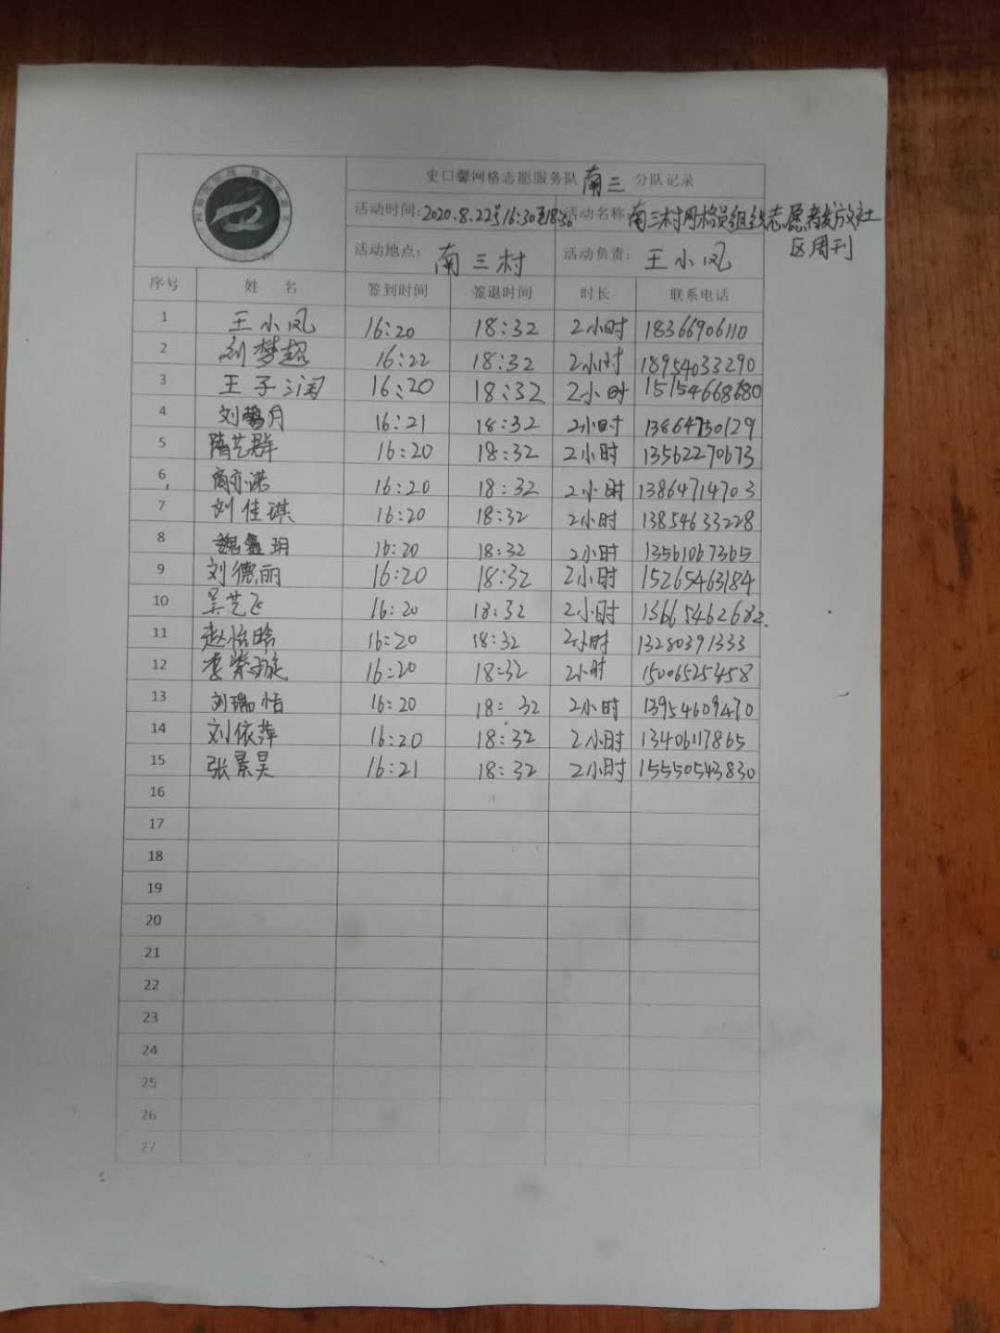 史口馨网格志愿服务队南三分队记录
活动时间:2020.8.22号16:30至18:30 活动名称:南三村网格员组织志愿者发放社
区周刊
活动地点:南三村 活动负责:王小凤
序号 姓 名 签到时间 签退时间 时长 联系电话
1 王小凤 16:20 18:32 2小时 18366906110
2 刘梦超 16:22 18:32 2小时 18954033290
3 王子润 16:20 18:32 2小时 15154668680
4 刘月 16:21 18:32 2小时 13864730129
5 隋艺群 16:20 18:32 2小时 13562270673
6 商亦诺 16:20 18:32 2小时 13864714703
7 刘佳琪 16:20 18:32 2小时 13854633228
8 魏鑫玥 16:20 18:32 2小时 13561067365
9 刘德丽 16:20 18:32 2小时 15265463184
10 吴艺飞 16:20 18:32 2小时 13665462682.
11 赵怡晗 16:20 18:32 2小时 13280391333
12 李紫璇 16:20 18:32 2小时 15006525458
13 刘瑞怡 16:20 18:32 2小时 13954609470
14 刘依萍 16:20 18:32 2小时 13406117865
15 张景昊 16:21 18:32 2小时 15550543830
16
17
18
19
20
21
22
23
24
25
26
27